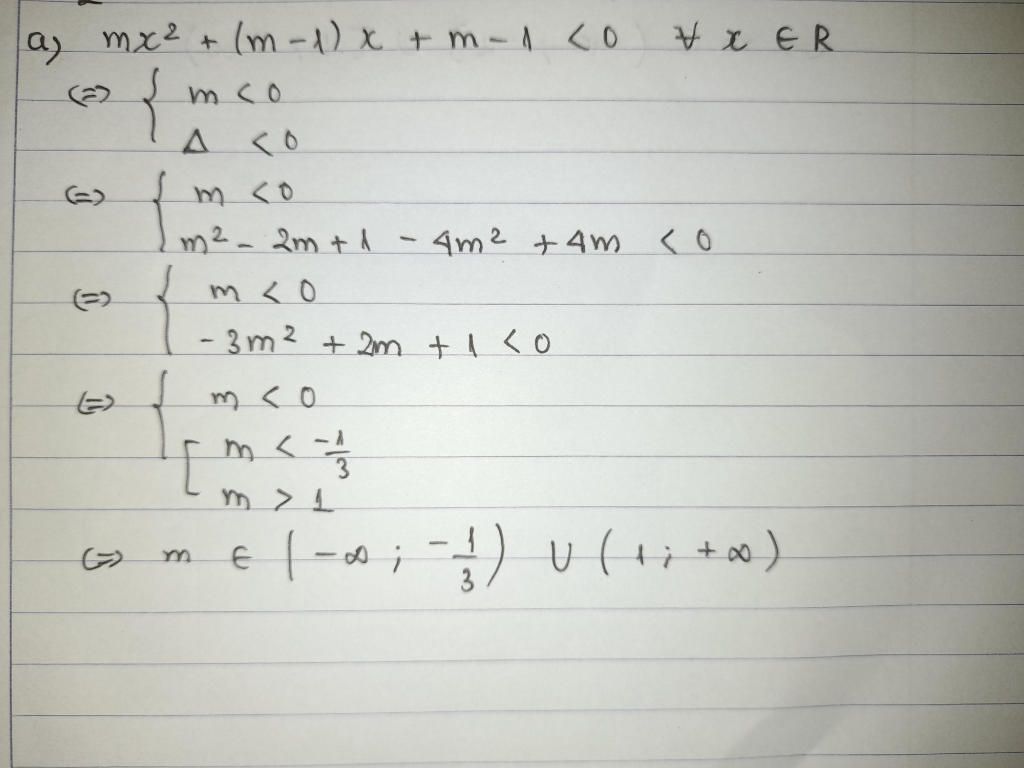 a) mx² + (m-1)x + m-1 < 0 ∀ x ∈ R
<=> { m < 0
Δ < 0
<=> { m < 0
m² - 2m + 1 - 4m² + 4m < 0
<=> { m < 0
- 3m² + 2m + 1 < 0
<=> { m < 0
[ m < -1/3
m > 1
<=> m ∈ (-∞; -1/3) ∪ (1; +∞)